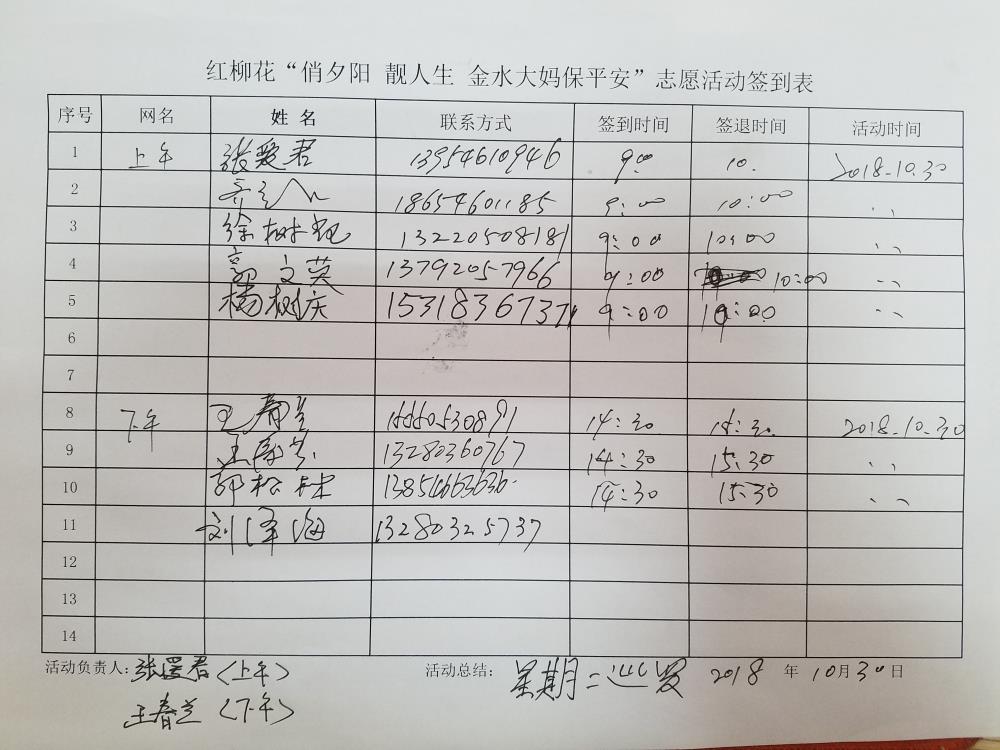 红柳花“俏夕阳 靓人生 金水大妈保平安”志愿活动签到表
序号 网名 姓名 联系方式 签到时间 签退时间 活动时间
1 上午 张爱君 13954610946 9:00 10. 2018.10.30
2 18654601185 9:00 10:00 ..
3 徐树 13220508181 9:00 10:00 ..
4 郭文英 13792057966 9:00 10:00 ..
5 杨树庆 1531836737 9:00 10:00 ..
6
7
8 下午 王春兰 16605530891 14:30 15:30 2018.10.30
9 王 13280360767 14:30 15:30 ..
10 郭松林 13854663636 14:30 15:30 ..
11 刘泽海 13280325737
12
13
14
活动负责人:张爱君(上午) 活动总结: 星期二巡逻 2018 年 10月30日
王春兰(下午)